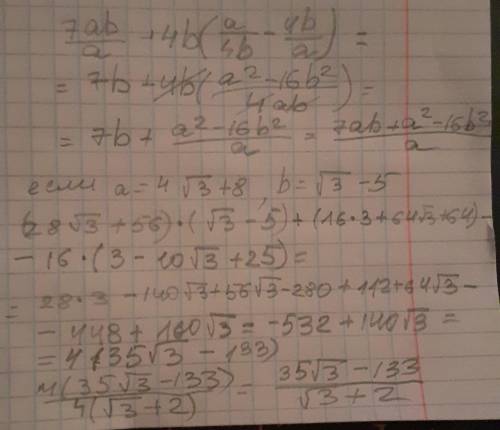 7ab/a + 4b(a/4b - 4b/a) =
= 7b + 4b(a² - 16b²/4ab) =
= 7b + a² - 16b²/a = 7ab + a² - 16b²/a
если a = 4√3 + 8, b = √3 - 5
(28√3 + 56)·(√3 - 5) + (16·3 + 64√3 + 64) -
- 16·(3 - 10√3 + 25) =
= 28·3 - 140√3 + 56√3 - 280 + 112 + 64√3 -
- 448 + 160√3 = -532 + 140√3 =
= 4(35√3 - 133)
4(35√3 - 133)/4(√3 + 2) = 35√3 - 133/√3 + 2